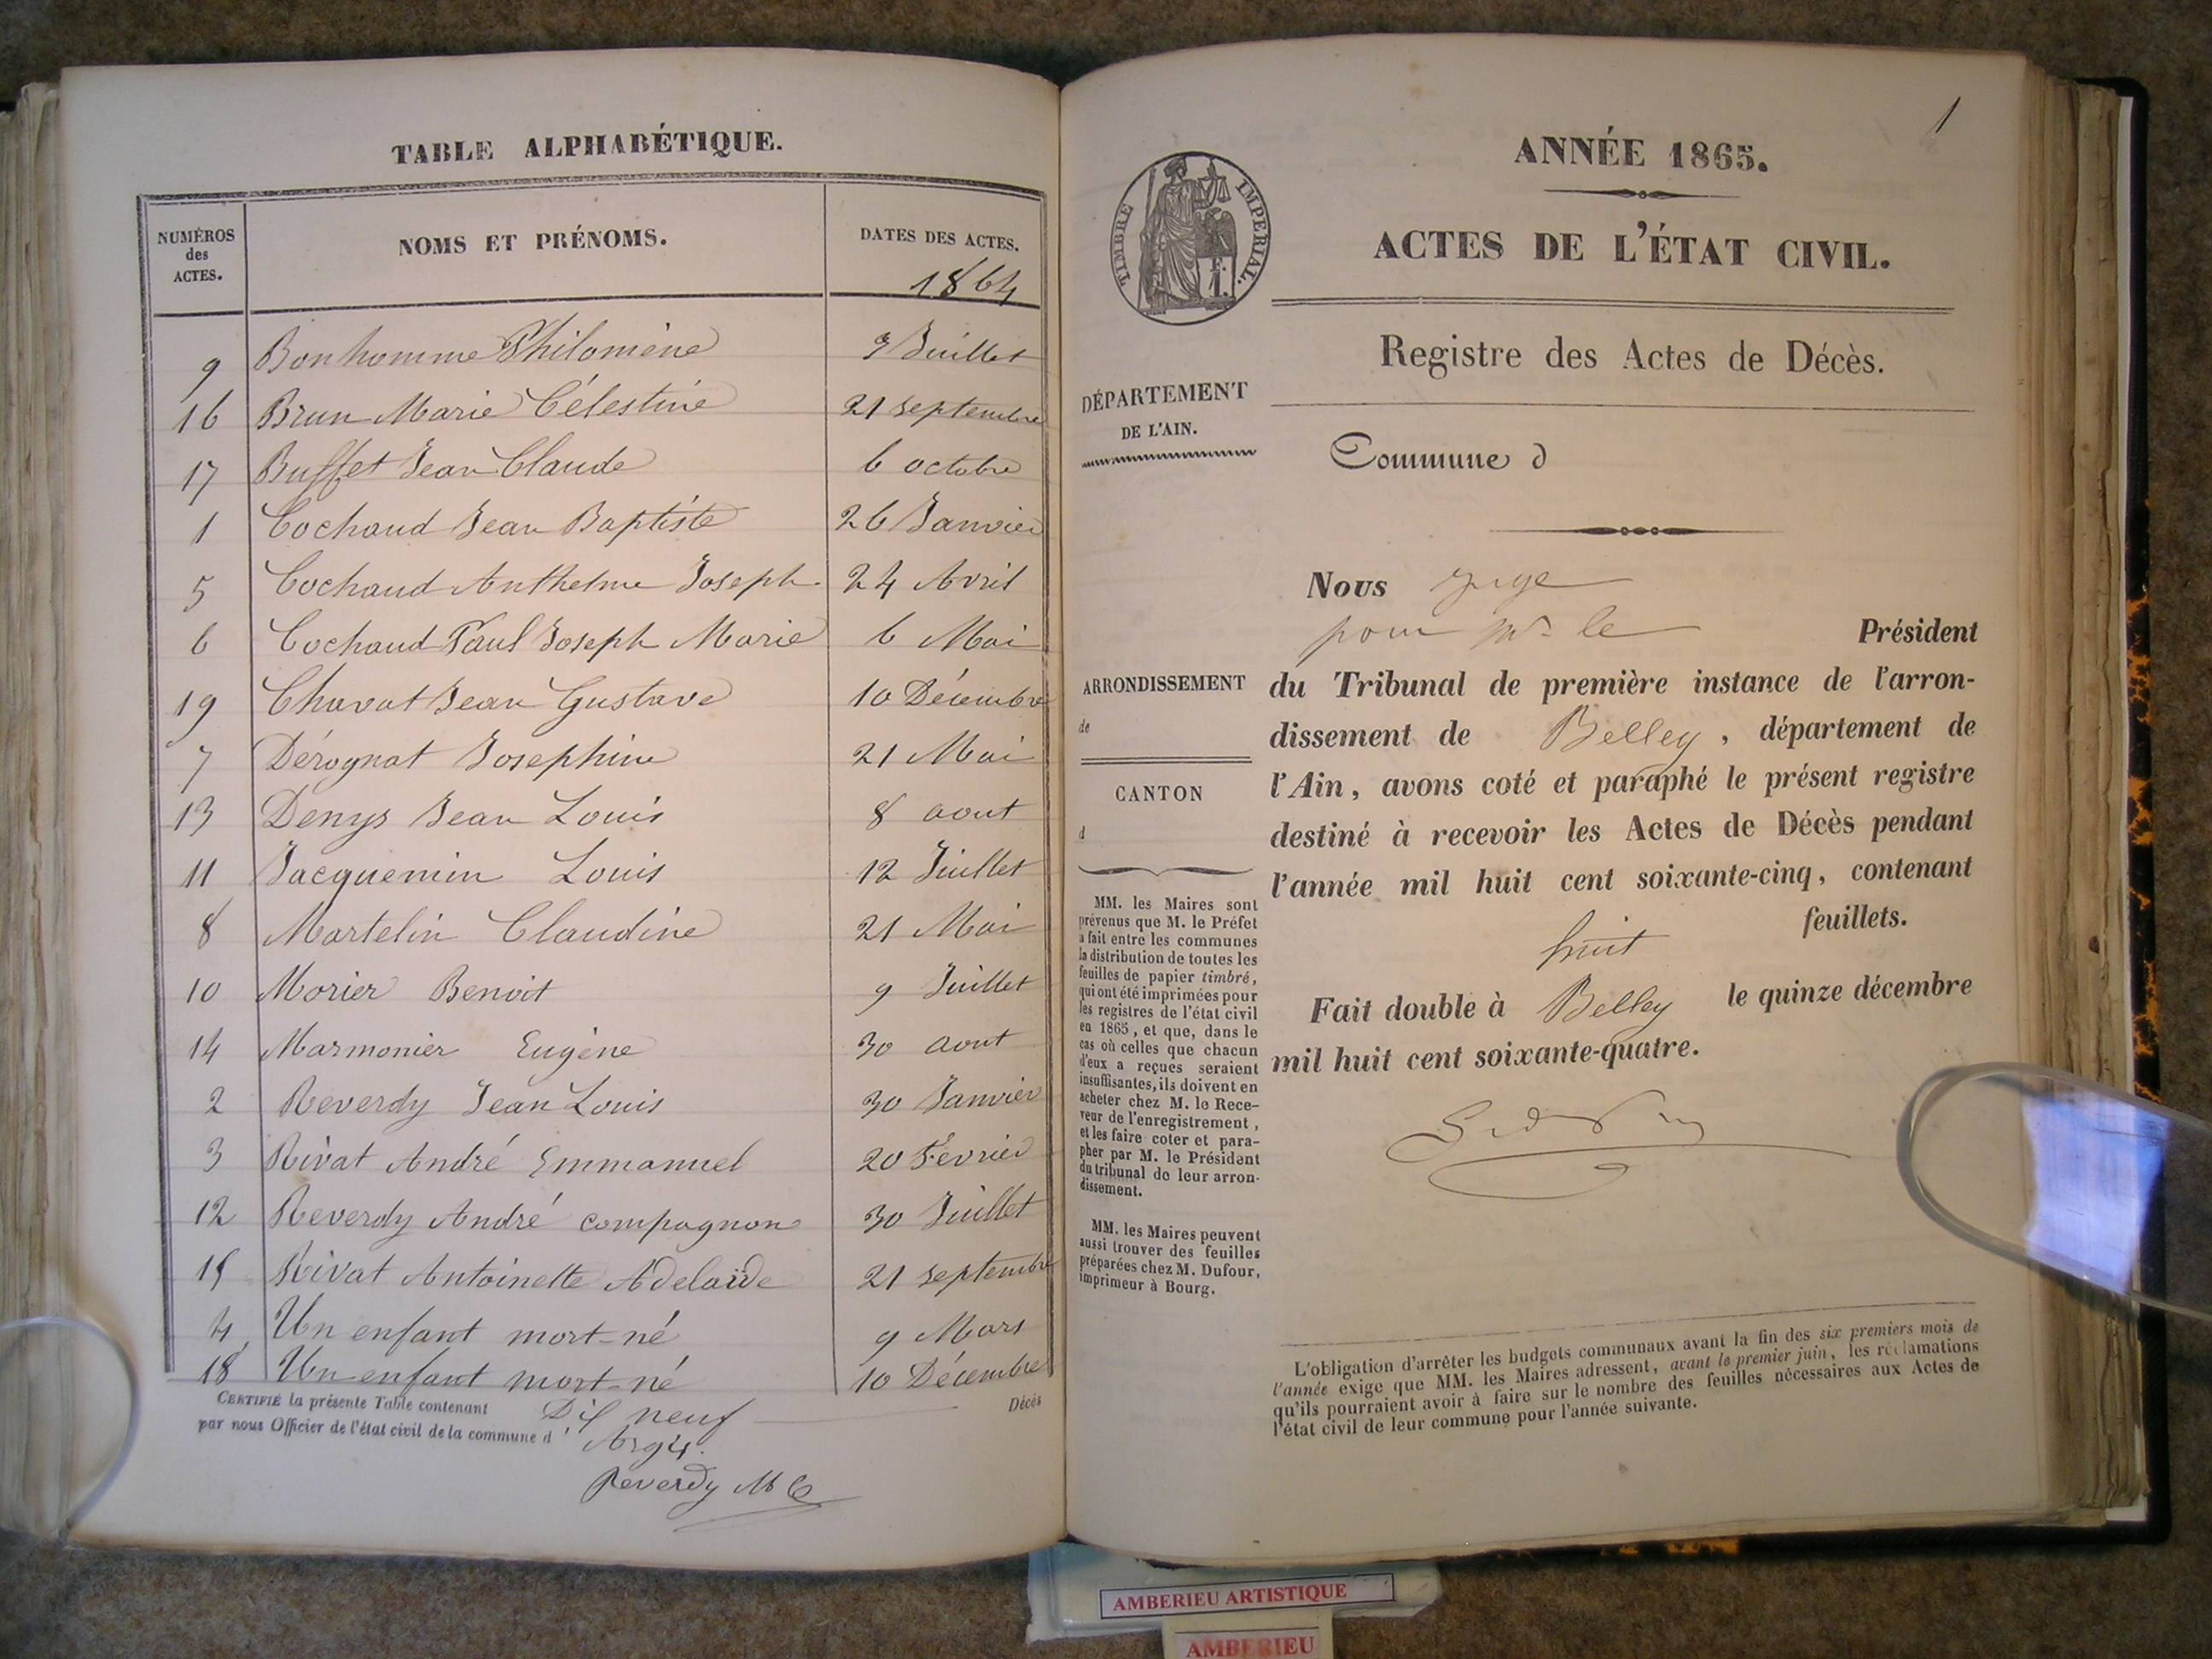 TABLE ALPHABÉTIQUE.
NUMÉROS des ACTES.
NOMS ET PRÉNOMS.
DATES DES ACTES.
1864
9 Bonhomme Philomène 9 Juillet
16 Brun Marie Célestine 21 septembre
17 Buffet Jean Claude 6 octobre
1 Cochaud Jean Baptiste 26 Janvier
5 Cochaud Anthelme Joseph 24 Avril
6 Cochaud Paul Joseph Marie 6 Mai
19 Chavat Jean Gustave 10 Décembre
7 Dérognat Josephine 21 Mai
13 Denys Jean Louis 8 aout
11 Jacquemin Louis 12 Juillet
8 Martelin Claudine 21 Mai
10 Morier Benoit 9 Juillet
14 Marmonier Eugène 30 aout
2 Reverdy Jean Louis 30 Janvier
3 Rivat André Emmanuel 20 Février
12 Reverdy André compagnon 30 Juillet
15 Rivat Antoinette Adelaïde 21 septembre
4 Un enfant mort-né 9 Mars
18 Un enfant mort-né 10 Décembre
CERTIFIÉ la présente Table contenant Dix neuf Décès
par nous Officier de l'état civil de la commune d' Argis.
Reverdy
1
TIMBRE IMPÉRIAL.
ANNÉE 1865.
ACTES DE L'ÉTAT CIVIL.
Registre des Actes de Décès.
DÉPARTEMENT
DE L'AIN.
Commune d
ARRONDISSEMENT
de
CANTON
d
MM. les Maires sont
prévenus que M. le Préfet
a fait entre les communes
la distribution de toutes les
feuilles de papier timbré,
qui ont été imprimées pour
les registres de l'état civil
en 1865, et que, dans le
cas où celles que chacun
d'eux a reçues seraient
insuffisantes, ils doivent en
acheter chez M. le Rece-
veur de l'enregistrement,
et les faire coter et para-
pher par M. le Président
du tribunal de leur arron-
dissement.
MM. les Maires peuvent
aussi trouver des feuilles
préparées chez M. Dufour,
imprimeur à Bourg.
Nous juge
pour Mr le Président
du Tribunal de première instance de l'arron-
dissement de Belley, département de
l'Ain, avons coté et paraphé le présent registre
destiné à recevoir les Actes de Décès pendant
l'année mil huit cent soixante-cinq, contenant
huit feuillets.
Fait double à Belley le quinze décembre
mil huit cent soixante-quatre.
L'obligation d'arrêter les budgets communaux avant la fin des six premiers mois de
l'année exige que MM. les Maires adressent, avant le premier juin, les réclamations
qu'ils pourraient avoir à faire sur le nombre des feuilles nécessaires aux Actes de
l'état civil de leur commune pour l'année suivante.
AMBERIEU ARTISTIQUE
AMBERIEU